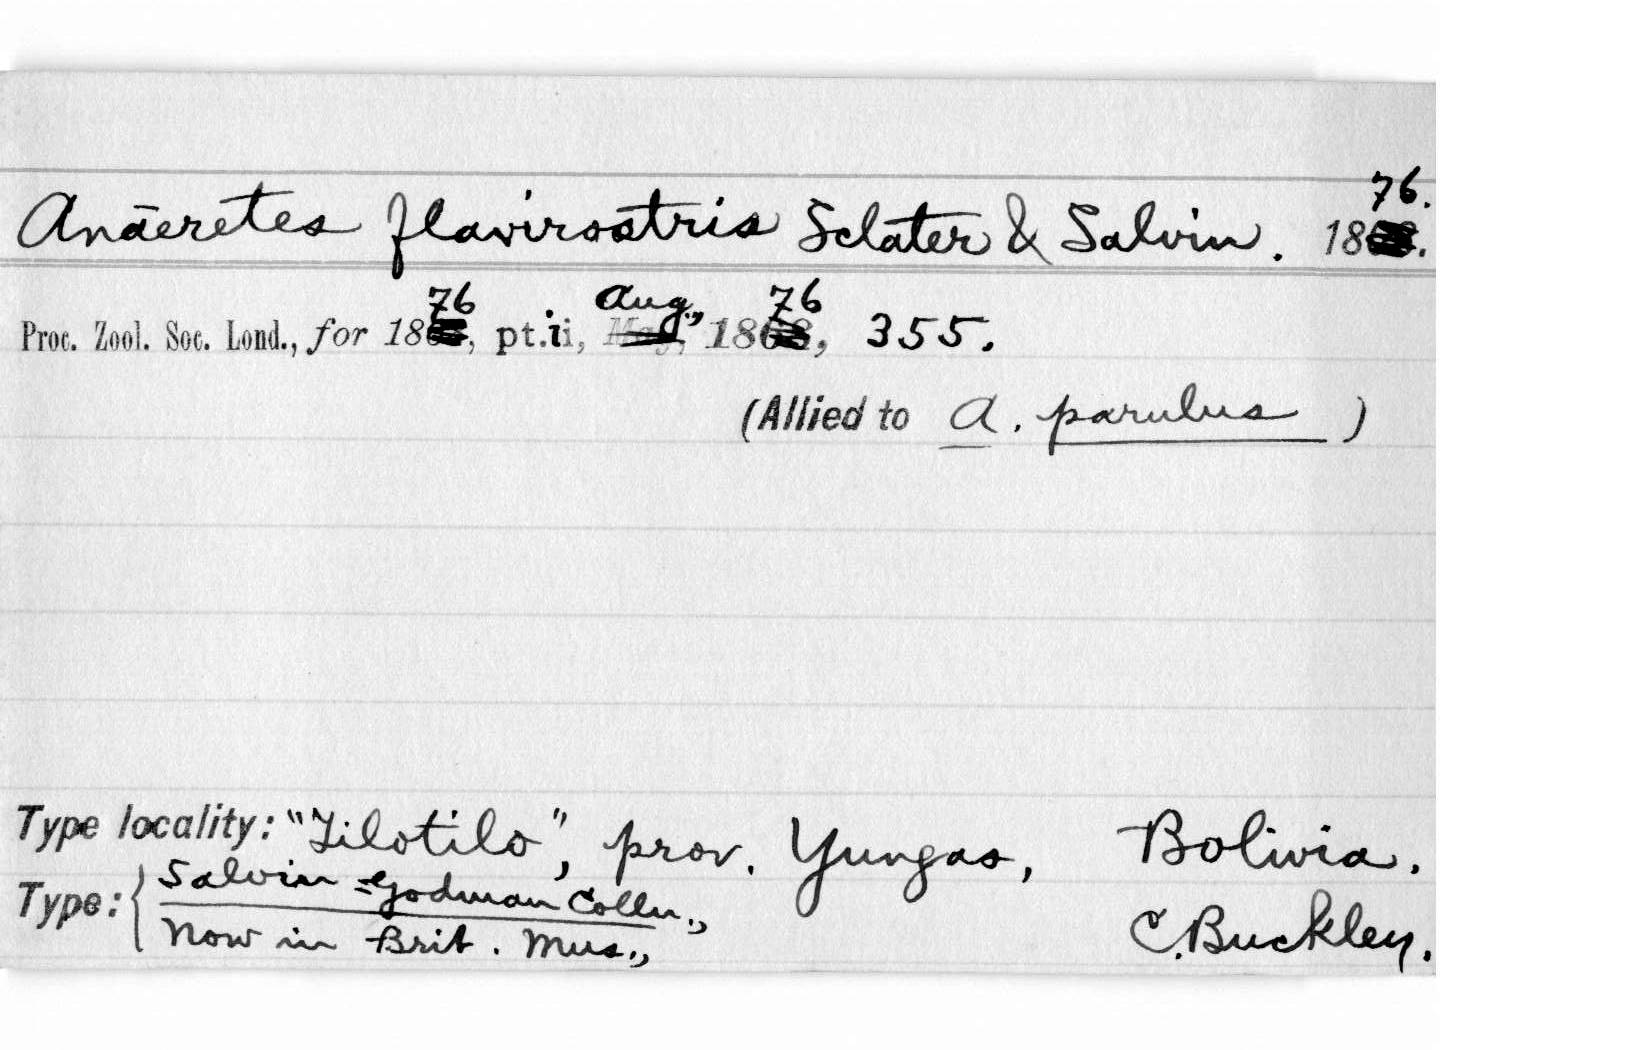 Anaeretes flavirostris Sclater & Salvin. 1876.
Proc. Zool. Soc. Lond., for 1876, pt. ii, Aug., 1876, 355.
(Allied to A. parulus)
Type locality: "Tilotilo", prov. Yungas, Bolivia.
Type: { Salvin-Godman Colln.,
Now in Brit. Mus., C. Buckley.